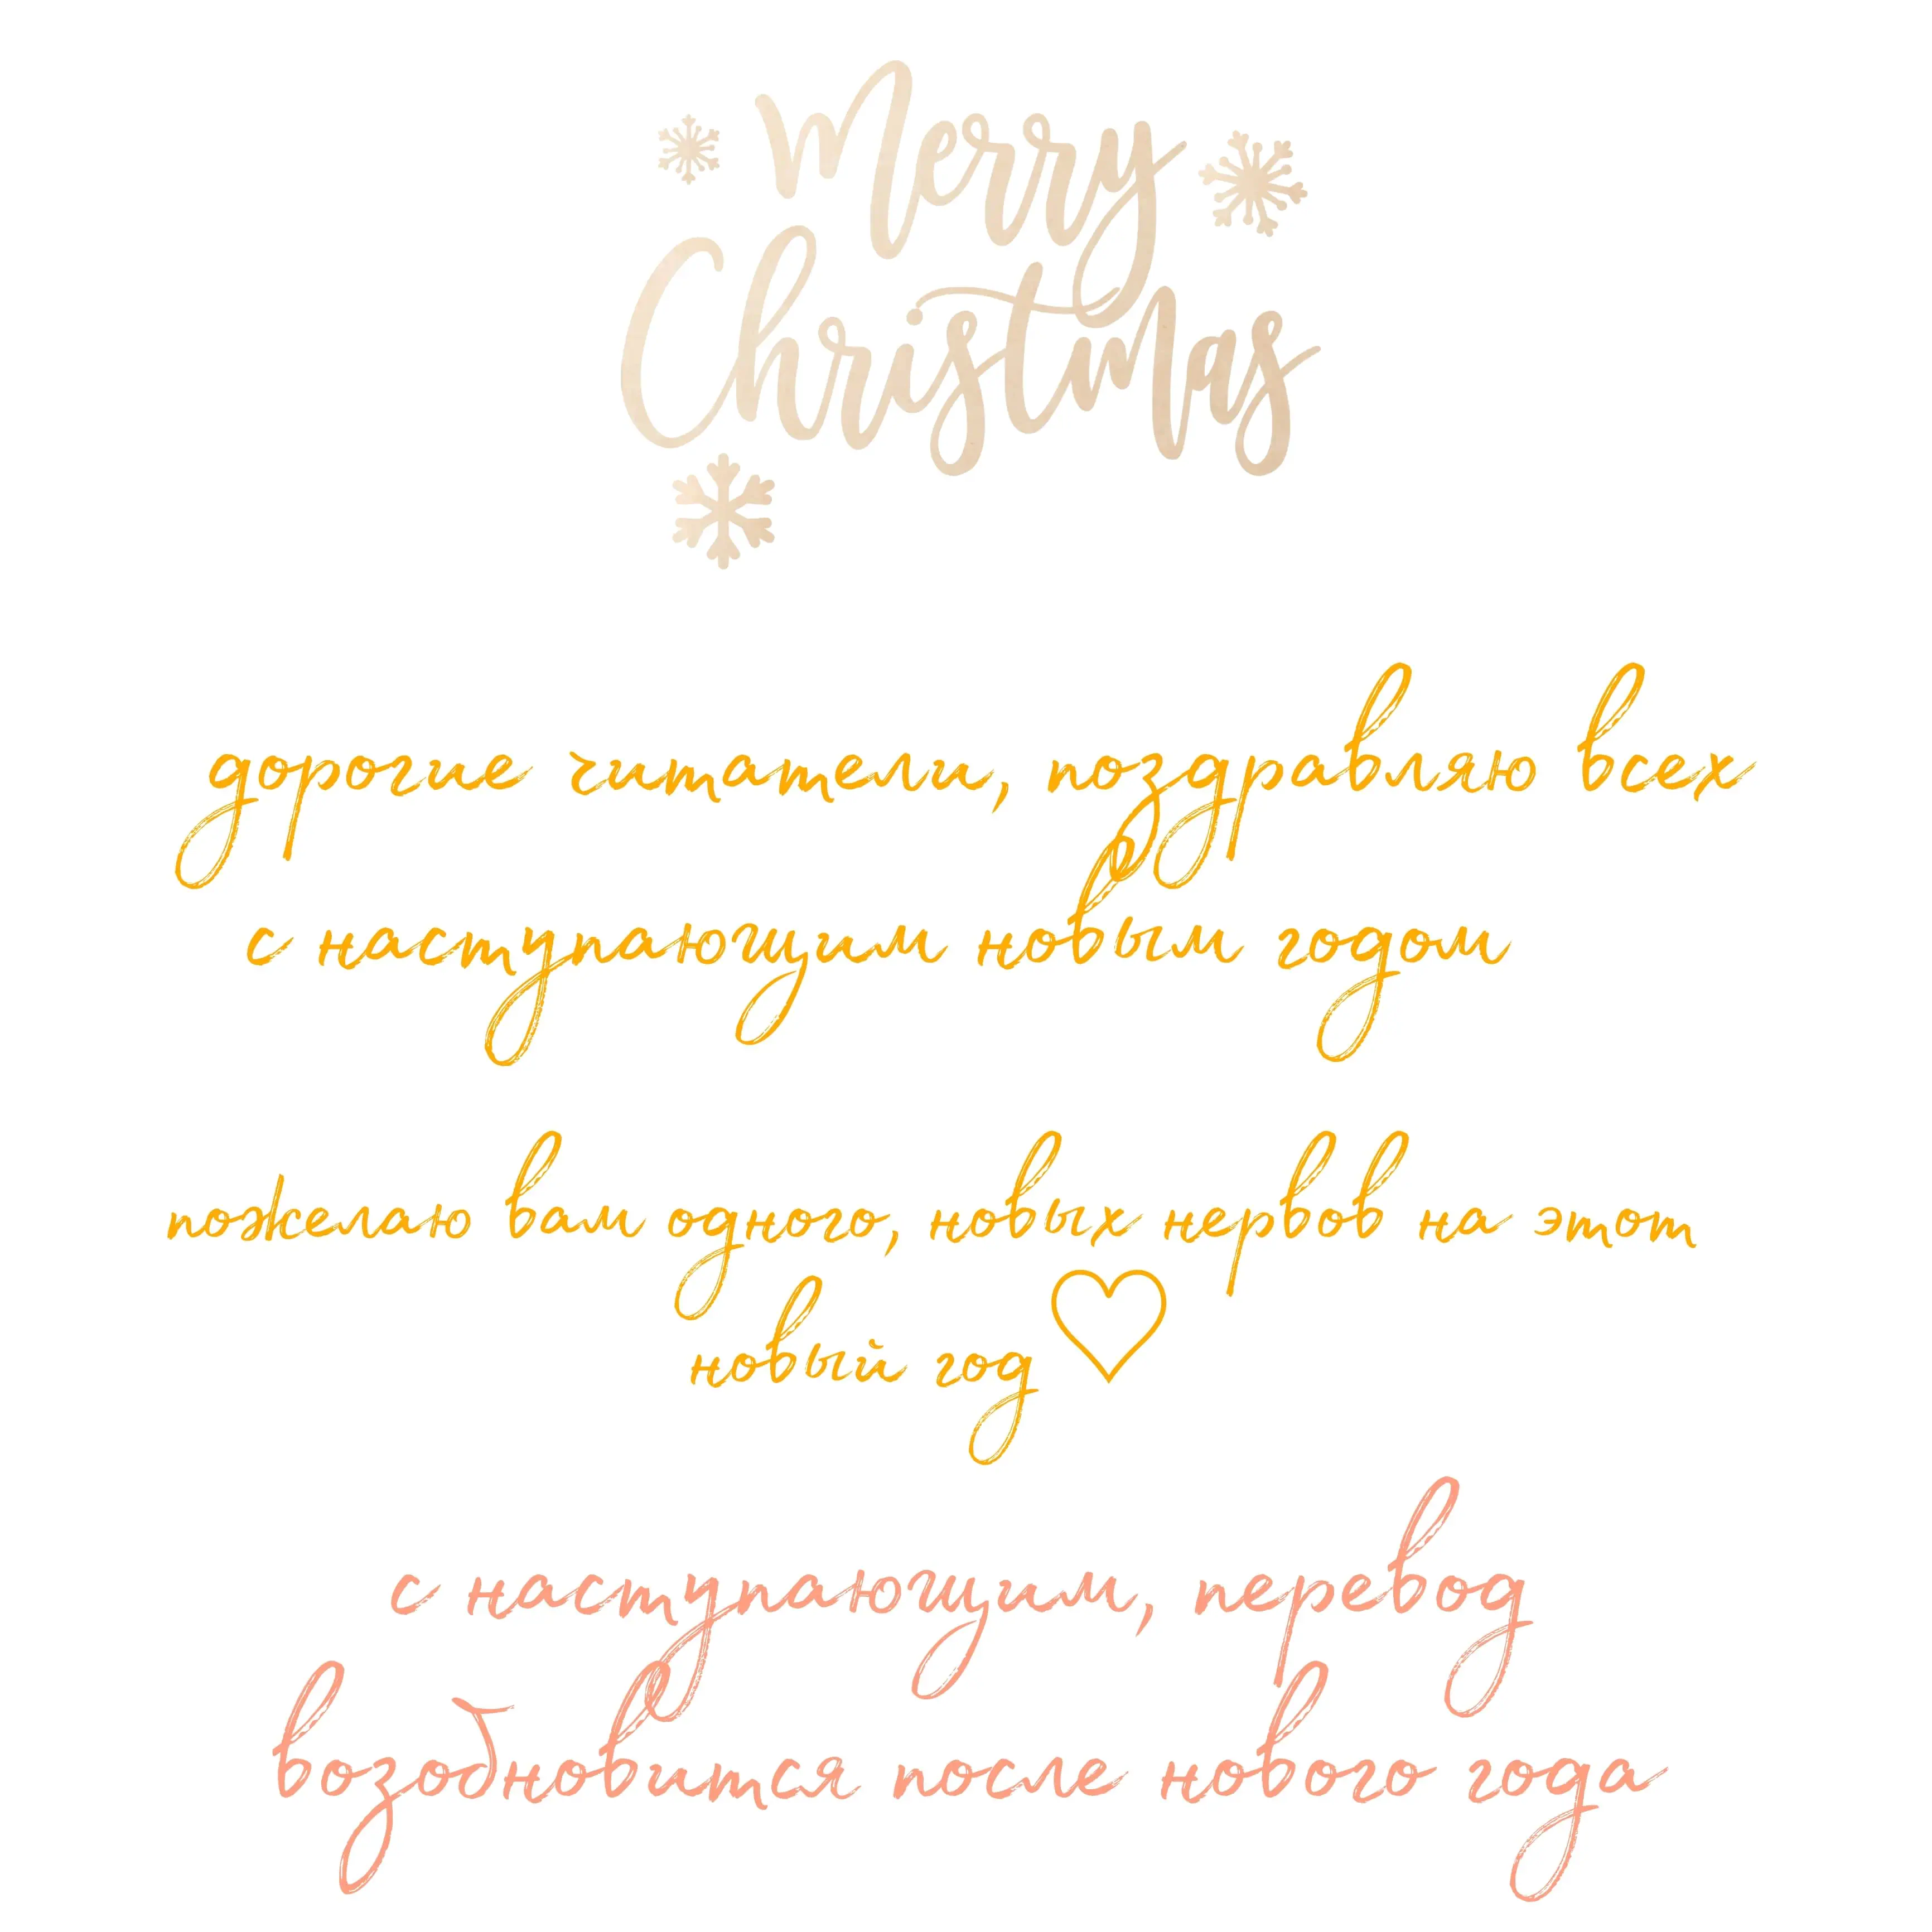 Merry
Christmas
дорогие читатели, поздравляю всех
с наступающим новым годом
пожелаю вам одного, новых нервов на этот
новый год
с наступающим, перевод
возобновится после нового года